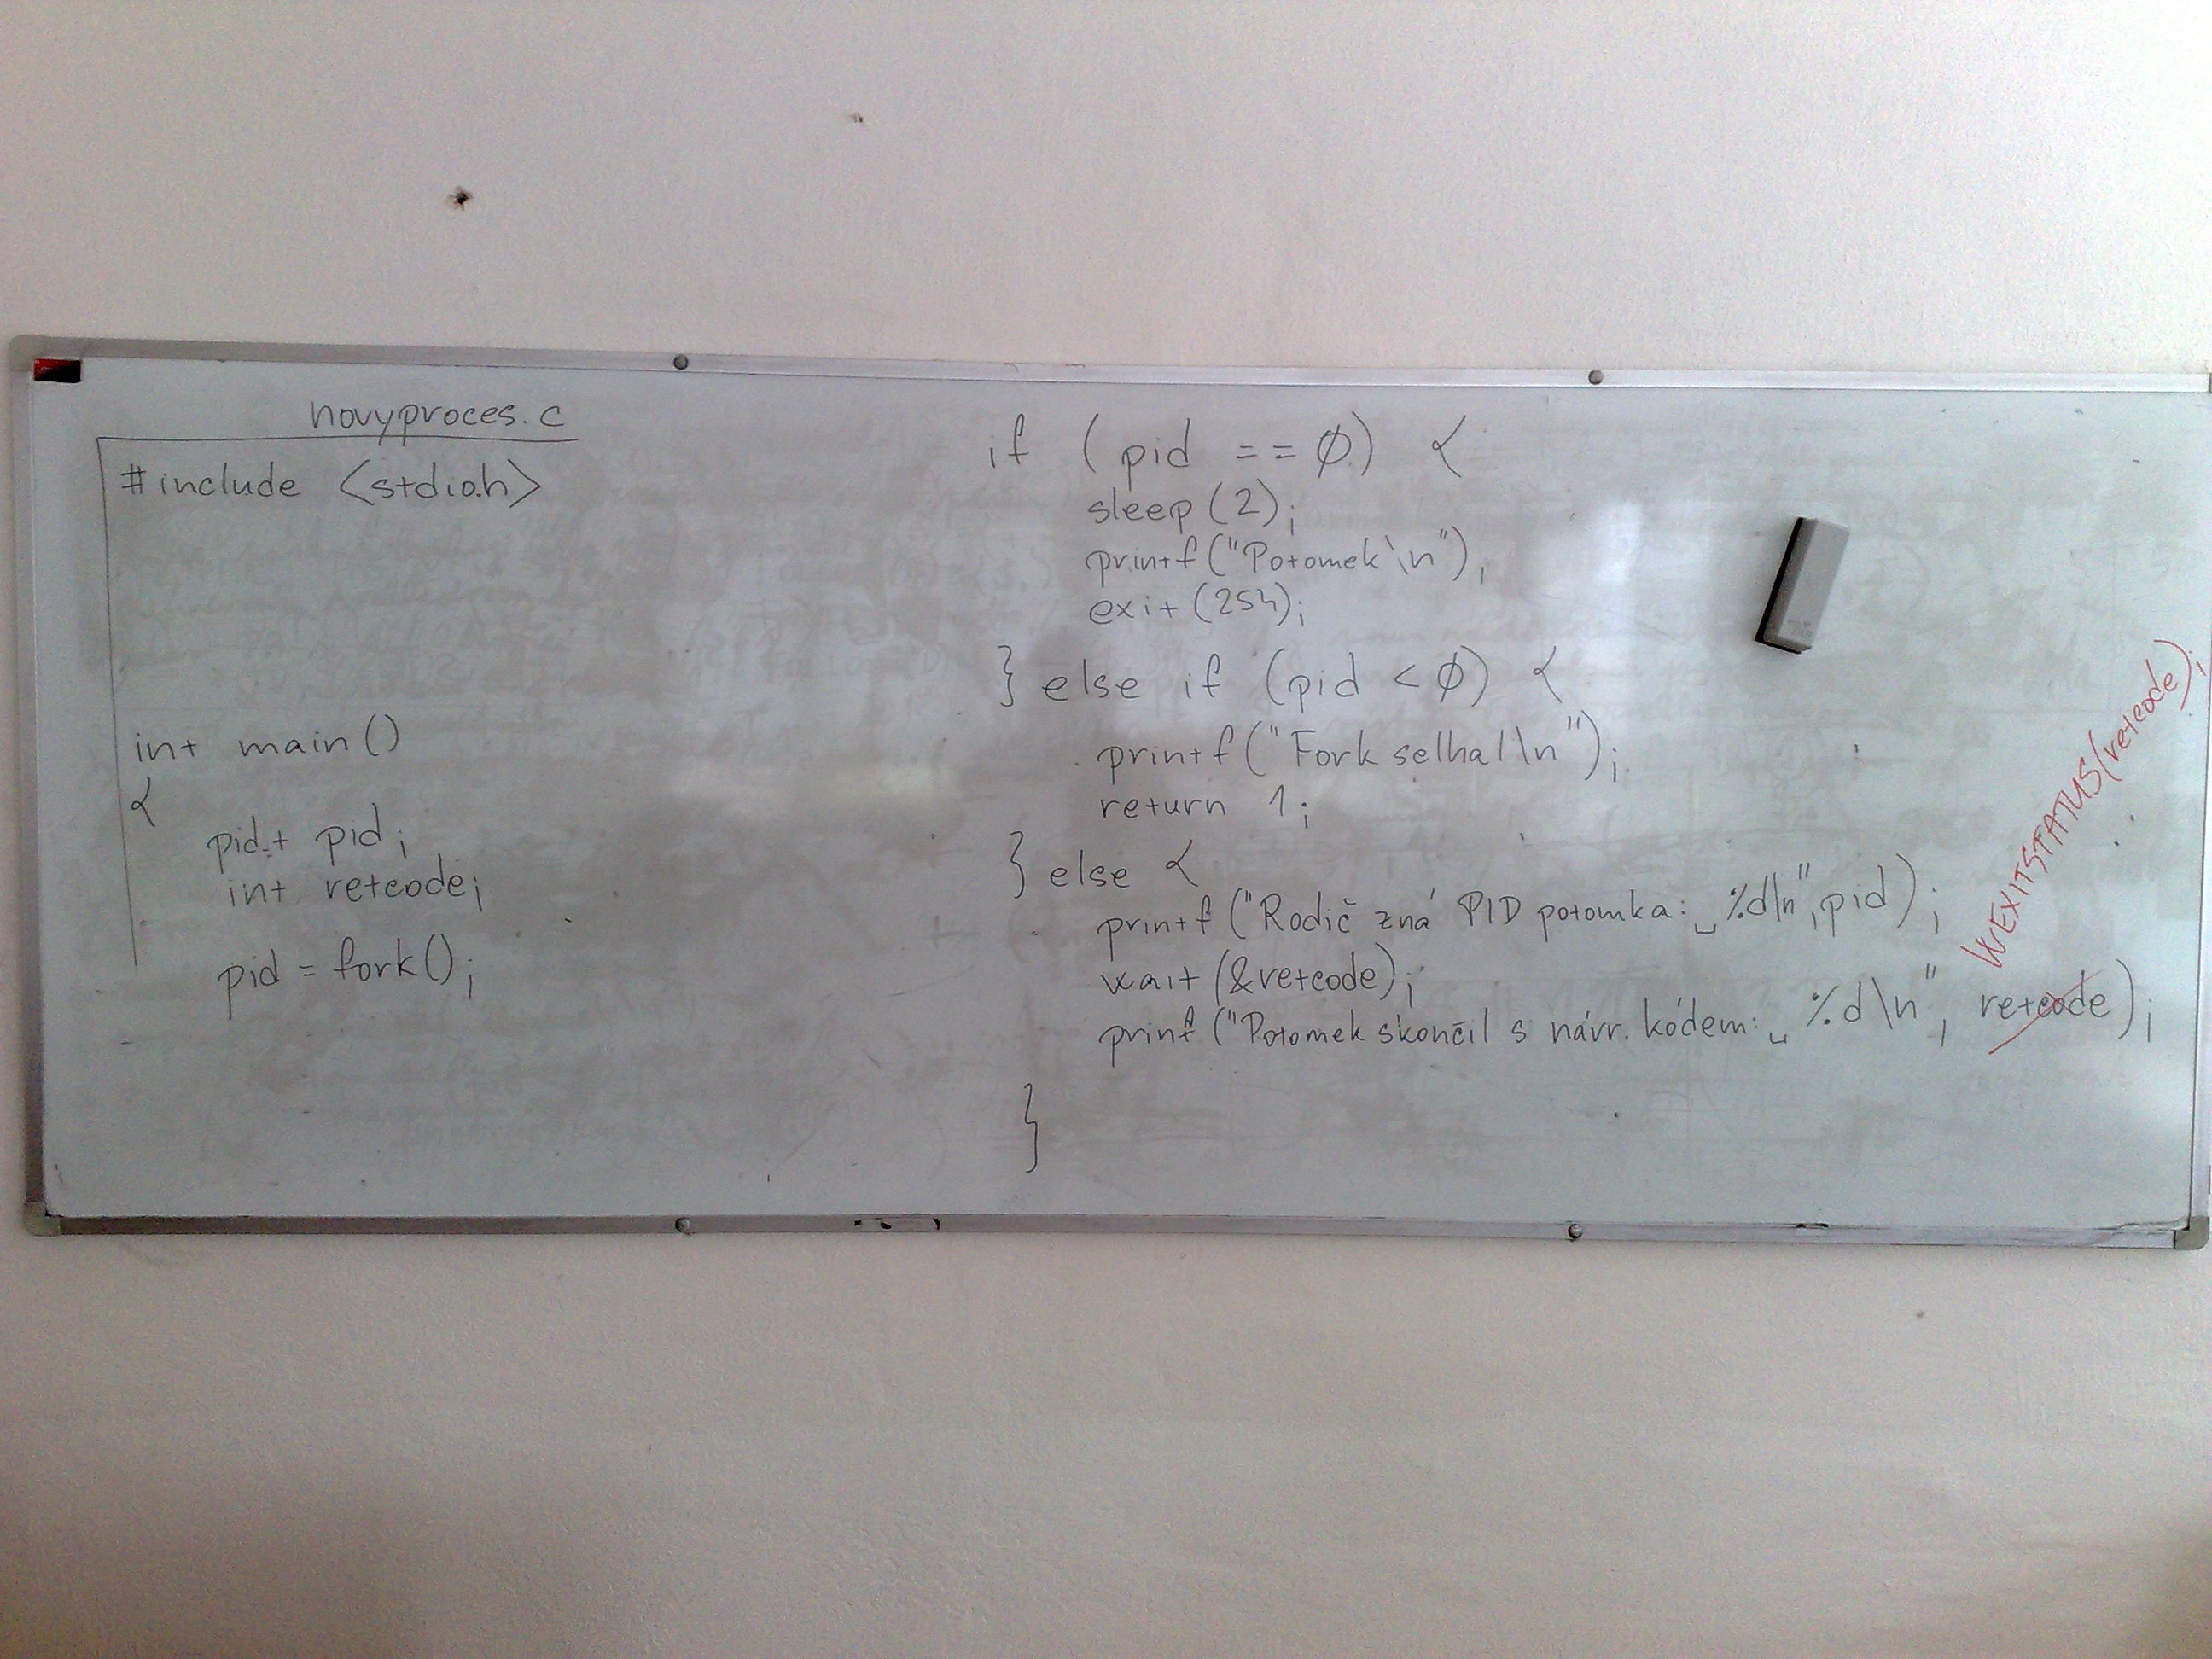 novyproces.c
#include <stdio.h>
int main()
{
pid_t pid;
int retcode;
pid = fork();
if (pid == 0) {
sleep(2);
printf("Potomek\n");
exit(254);
} else if (pid < 0) {
printf("Fork selhal\n");
return 1;
} else {
printf("Rodič zná PID potomka:␣%d\n", pid);
wait(&retcode);
printf("Potomek skončil s návr. kódem:␣%d\n", retcode);
WEXITSTATUS(retcode);
}